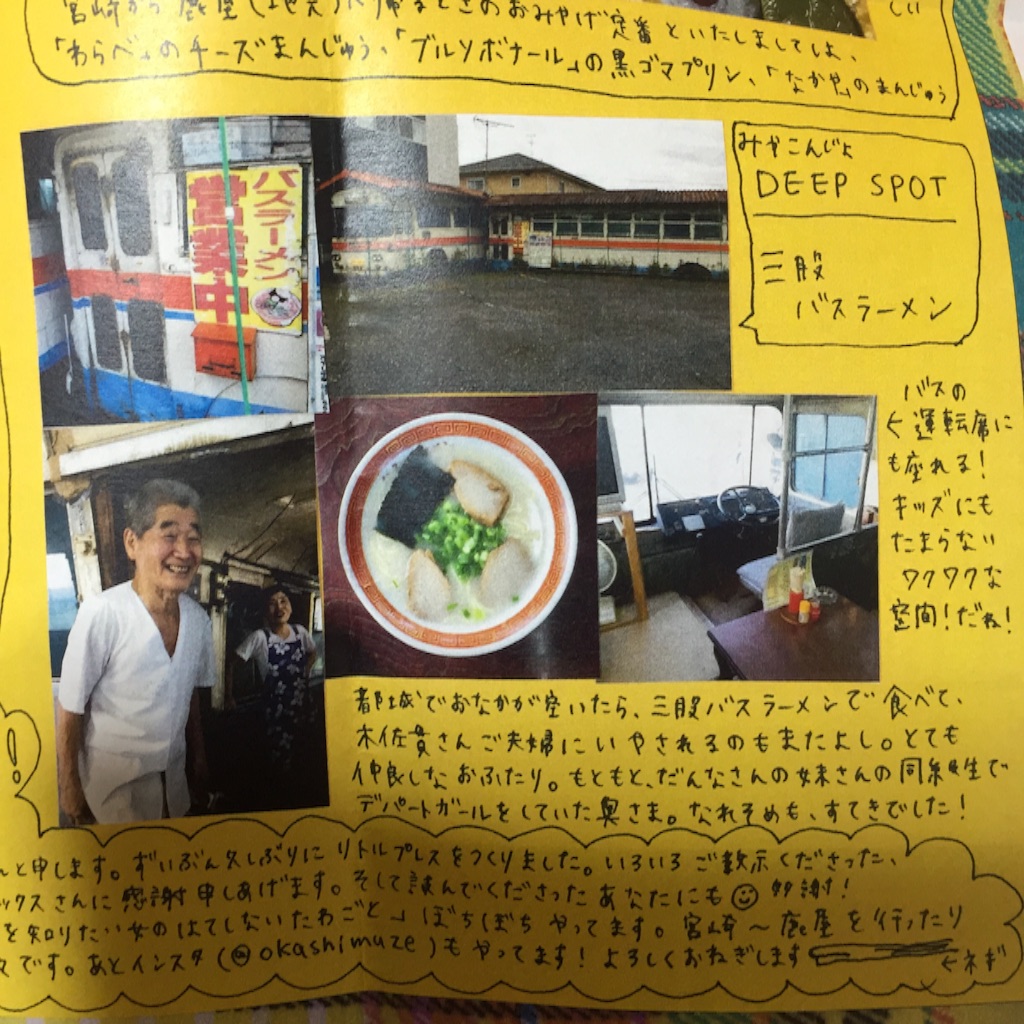 宮崎から鹿屋(地元)へ帰るときのおみやげ定番といたしましてしよ、
「わらべ」のチーズまんじゅう、「ブルソボナール」の黒ゴマプリン、「なかや」のまんじゅう
しい
みやこんじょ
DEEP SPOT
三股
バスラーメン
バスラーメン
営業中
バスの
←運転席に
も座れる!
キッズにも
たまらない
ワクワクな
空間!だね!
都城でおなかが空いたら、三股バスラーメンで食べて、
木佐貫さんご夫婦にいやされるのもまたよし。とても
仲良しなおふたり。もともと、だんなさんの妹さんの同級生で
デパートガールをしていた奥さま。なれそめも、すてきでした!
!
と申します。ずいぶん久しぶりにリトルプレスをつくりました。いろいろご教示くださった、
ックスさんに感謝申しあげます。そして読んでくださったあなたにも 多謝!
を知りたい女のはてしないたわごと」ぼちぼちやってます。宮崎〜鹿屋を行ったり
です。あとインスタ(@okashimuze)もやってます!よろしくおねぎします
←ネギ